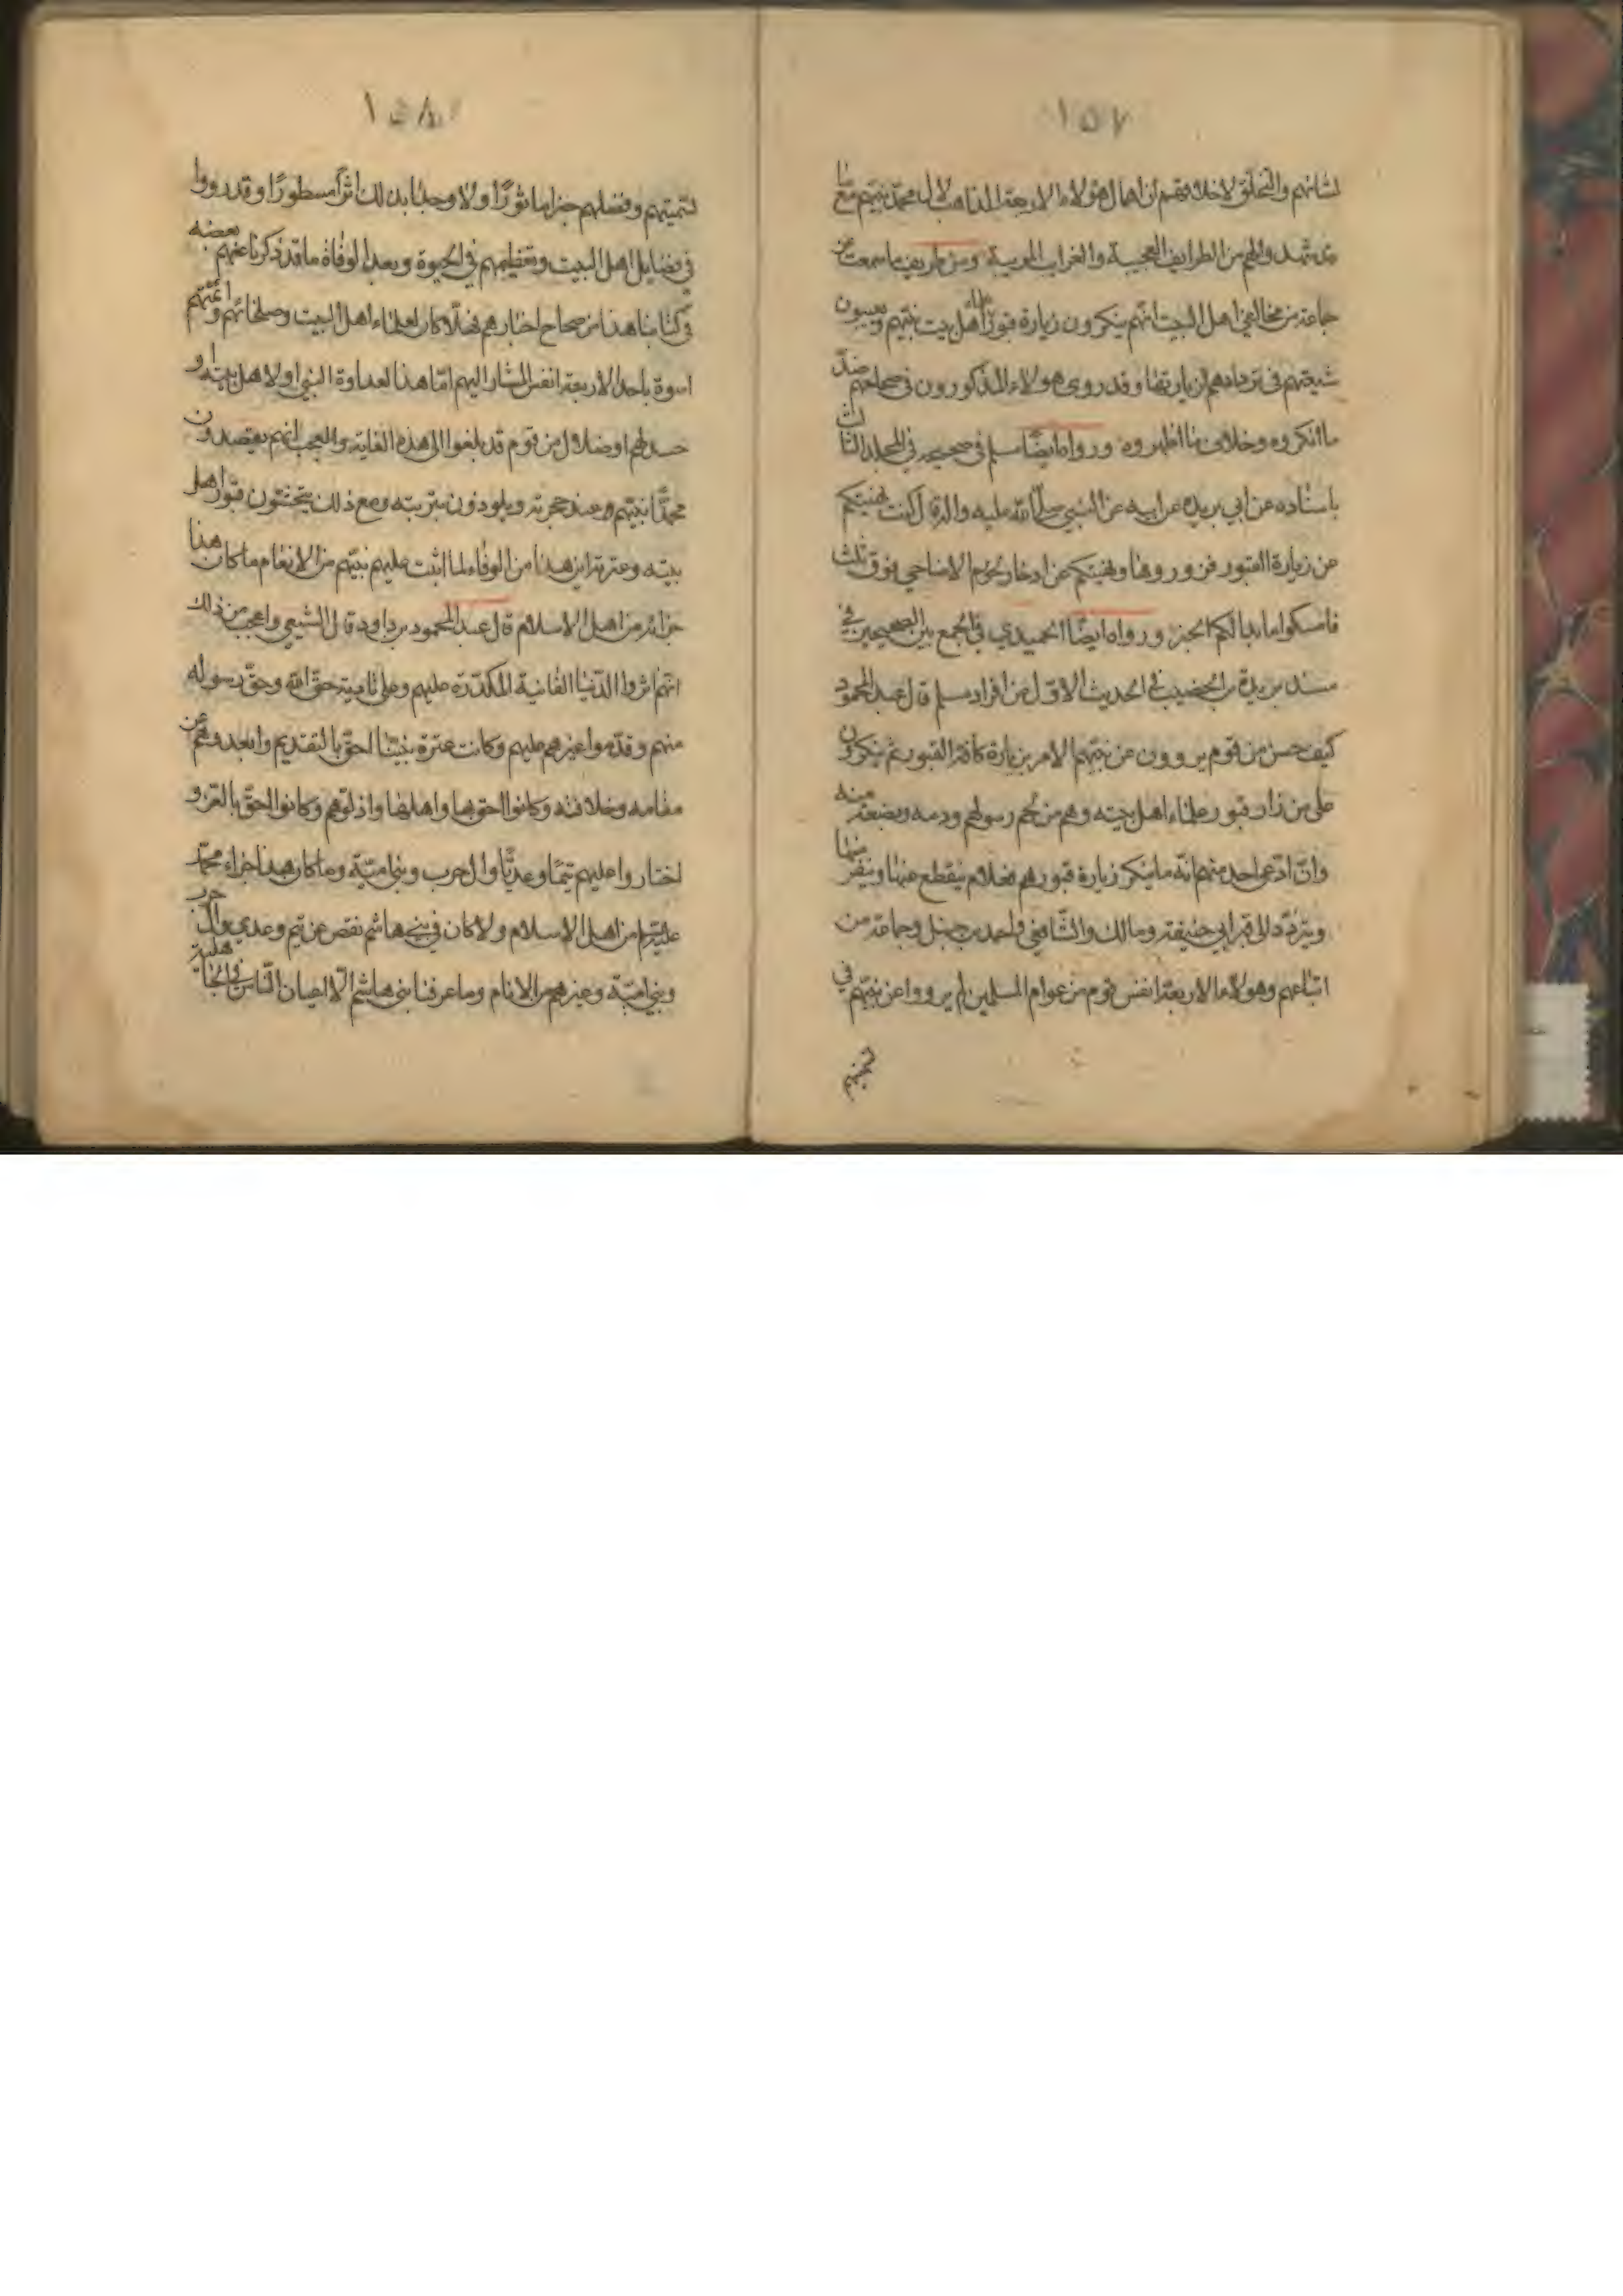 ١٥٧
لشانهم والتخلق لاخلاقهم ان اهمال هؤلاء الاربعة المذاهب لآل محمد نبيهم مع ما
قد شهدوا لهم من الطرايف العجيبة والغرايب المريبة ومن طريف ما سمعت عن
جماعة من مخالفي اهل البيت انهم ينكرون زيارة قبور علماء اهل بيت نبيهم ويعيبون
شيعتهم في تردادهم لزيارتها وقد روى هؤلاء المذكورون في صحاحهم ضد
ما انكروه وخلاف ما اظهروه ورواه ايضا مسلم في صحيحه في المجلد الثالث
باسناده عن ابي بريدة عن ابيه عن النبي صلى الله عليه واله قال كنت نهيتكم
عن زيارة القبور فزوروها ونهيتكم عن ادخار لحوم الاضاحي فوق ثلث
فامسكوا ما بدا لكم الخبز ورواه ايضا الحميدي في الجمع بين الصحيحين في
مسند بريدة بن الخضيب في الحديث الاول من افراد مسلم قال عبد المحمود
كيف حسن من قوم يروون عن نبيهم الامر بزيارة كافة القبور ثم ينكرون
على من زار قبور علماء اهل بيته وهم من لحم رسولهم ودمه وبضعة منه
وان ادعى احد منهم انه ما ينكر زيارة قبورهم فعلام ينقطع عنها وينفر منها
ويتردد الى قبر ابي حنيفة ومالك والشافعي واحمد بن حنبل وجماعة من
اتباعهم وهؤلاء الاربعة انفس قوم من عوام المسلمين لم يرووا عن نبيهم في
١٥٨
تسميتهم وفضلهم خبرا ماثورا ولا وجدنا بذلك اثرا مسطورا وقد رووا
في فضايل اهل البيت وتعظيمهم في الحيوة وبعد الوفاة ما قد ذكرنا عنهم بعضه
في كتابنا هذا من صحاح اخبارهم فهلا كان لعلماء اهل البيت وصلحائهم وائمتهم
اسوة باحد الاربعة انفس المشار اليهم اما هذا لعداوة النبي او لاهل بيته او
حسد لهم او ضلال من قوم قد بلغوا الى هذه الغاية والعجب انهم يقصدون
محمدا نبيهم وعند حجرته ويلوذون بتربته ومع ذلك يجتنبون قبور اهل
بيته وعترته اين هذا من الوفاء لما اثبت عليهم نبيهم من الانعام ما كان هذا
جزائه من اهل الاسلام قال عبد المحمود بن داود قال الشيعي واعجب من ذلك
انهم اثروا الدنيا الفانية المكدرة عليهم وعلى تادية حق الله وحق رسوله
منهم وقدموا غيرهم عليهم وكانت عترة نبينا احق بالتقديم وابعدوهم عن
مقامه وخلافته وكانوا احق بها واهلها واذلوهم وكانوا احق بالعز و
اختاروا عليهم تيما وعديا وال حرب وبني امية وما كان هذا جزاء محمد
عليه السلم من اهل الاسلام ولا كان في بني هاشم نقص عن تيم وعدي وال حرب
وبني امية وغيرهم من الانام وما عرفنا بني هاشم الا اعيان الناس في الجاهلية